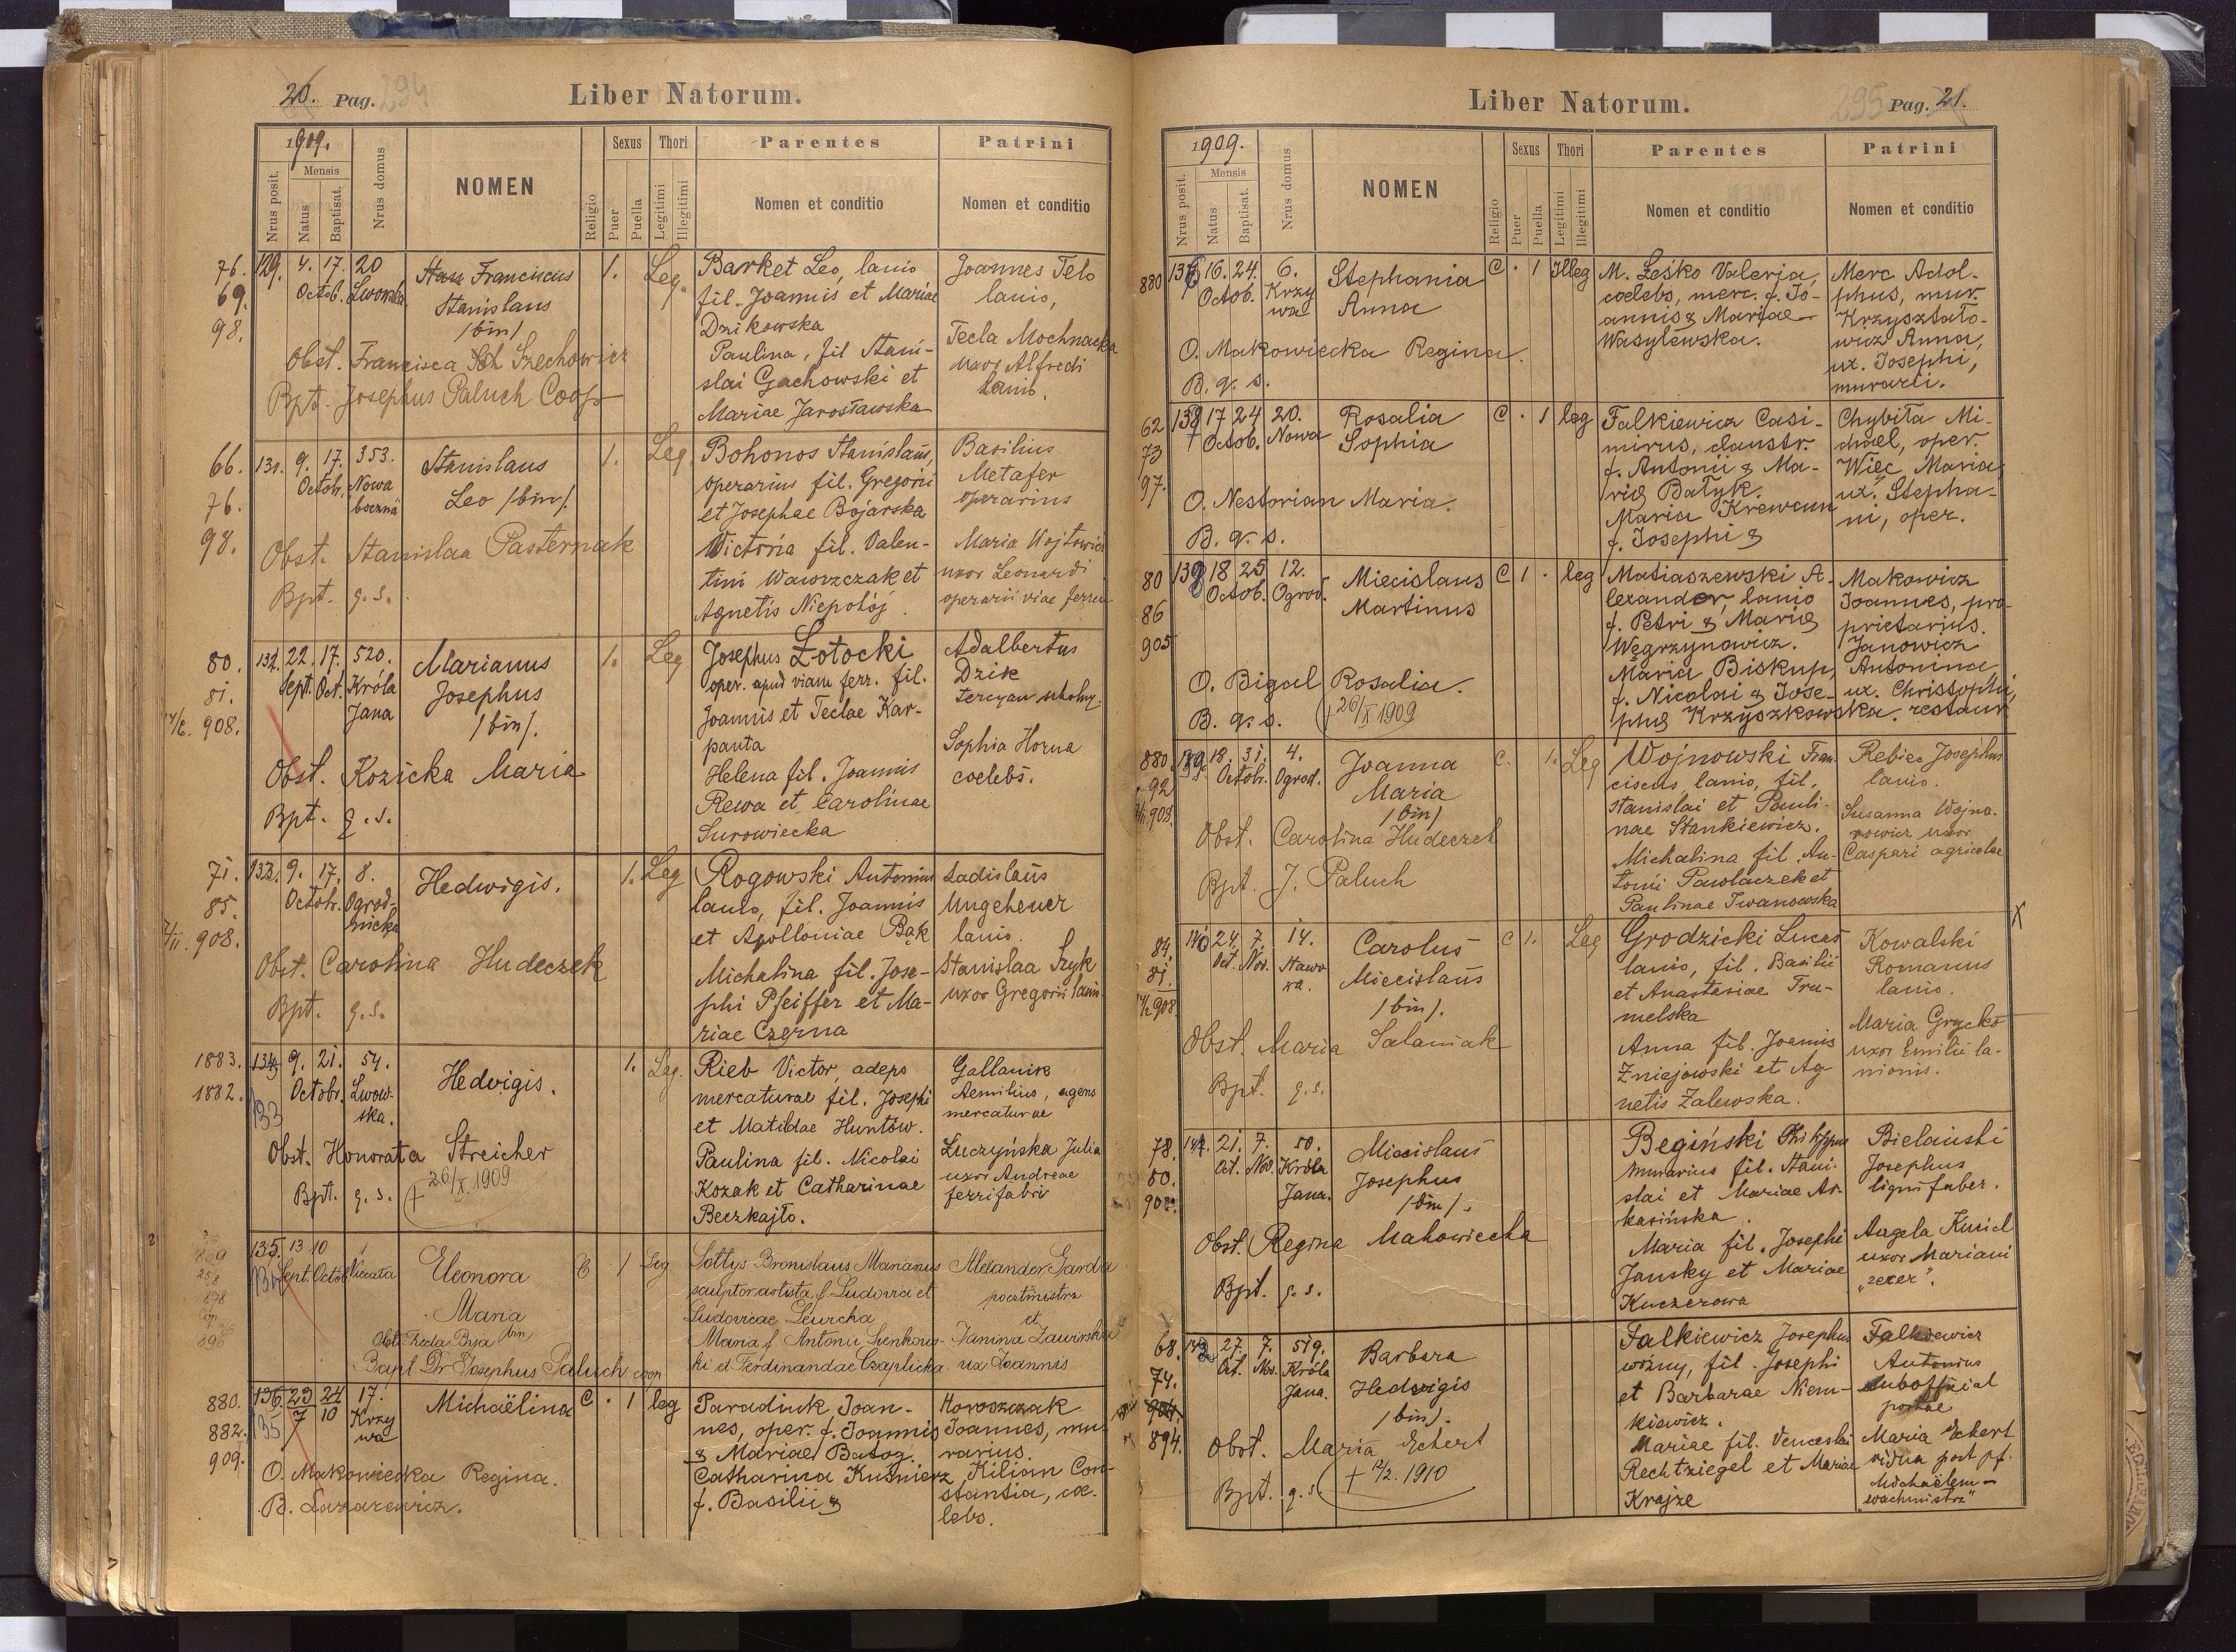 20. Pag. 294
Liber Natorum.
1909.
Nrus posit.
Mensis
Natus
Baptisat.
Nrus domus
NOMEN
Religio
Sexus
Puer
Puella
Thori
Legitimi
Illegitimi
Parentes
Nomen et conditio
Patrini
Nomen et conditio
76.
69.
98.
129. 4. 17. 20
Octob. Lwowska
Franciscus
Stanislaus
/bin/
1. Leg.
Obst. Francisca Szechowicz
Bpt. Josephus Paluch Coop
Barket Leo, lanio
fil. Joannis et Mariae
Dzikowska
Paulina, fil Stani-
slai Gachowski et
Mariae Jarosławska
Joannes Telo
lanio,
Tecla Mochnacka
uxor Alfredi
lanio.
66.
76.
98.
131. 9. 17. 353.
Octob. Nowa
boczna
Stanislaus
Leo /bin/.
1. Leg.
Obst. Stanislaa Pasternak
Bpt. q.s.
Bohonos Stanislaus,
operarius fil. Gregorii
et Josephae Bojarska
Victoria fil. Valen-
tini Wawrzczak et
Agnetis Niepokój.
Basilius
Metafer
operarius
Maria Wojtowicz
uxor Leonardi
operarii viae ferreae
80.
81.
908.
132. 22. 17. 520.
Sept. Oct. Króla
Jana
Marianus
Josephus
/bin/.
1. Leg
Obst. Kozicka Maria
Bpt. q.s.
Josephus Łotocki
oper. apud viam ferr. fil.
Joannis et Teclae Kar-
panta
Helena fil. Joannis
Rewa et Carolinae
Surowiecka
Adalbertus
Dzik
tercyan szkolny.
Sophia Horna
coelebs.
71.
85.
908.
133. 9. 17. 8.
Octob. Ogrod-
nicka
Hedwigis.
1. Leg
Obst. Carolina Hudeczek
Bpt. q.s.
Rogowski Antonius
lanio, fil. Joannis
et Apolloniae Bąk
Michalina fil. Jose-
phi Pfeiffer et Ma-
riae Czerna
Ladislaus
Ungeheuer
lanio.
Stanislaa Szyk
uxor Gregorii lanio.
1883.
1882.
134 9. 21. 54.
133
Octobr. Lwow-
ska.
Hedvigis.
1. Leg.
Obst. Honorata Streicher
Bpt. q.s.
+ 26/X. 1909
Rieb Victor, adeps
mercaturae fil. Josephi
et Matildae Huntów.
Paulina fil. Nicolai
Kozak et Catharinae
Beczkajło.
Gallanik
Aemilius, agens
mercaturae
Łuczyńska Julia
uxor Andreae
ferrifabri
135. 13 10
Sept. Octob
Eleonora
Maria
bin
C 1 Leg
Obst. Tecla Bya
Bapt Dr Josephus Paluch coop
Sołtys Bronislaus Marianus
sculptor artista f. Ludovici et
Ludovicae Leurcha
Maria f. Antonii Szenkows-
ki et Ferdinandae Czaplicka
Alexander Garda
poctmistrz
et
Janina Zawirska
ux Joannis
880.
882.
909.
136. 23 24 17.
135 7 10 Krzy
wa
Michaëlina
C · 1 leg
O. Makowiecka Regina.
B. Lazarewicz.
Paradiuk Joan-
nes, oper. f. Joannis
& Mariae Batog.
Catharina Kuśnierz
f. Basilii &
Horoszczak
Joannes, mu-
rarius.
Kilian Con-
stantia, coe-
lebs.
Liber Natorum.
295 Pag. 21.
1909.
Nrus posit.
Mensis
Natus
Baptisat.
Nrus domus
NOMEN
Religio
Sexus
Puer
Puella
Thori
Legitimi
Illegitimi
Parentes
Nomen et conditio
Patrini
Nomen et conditio
880
136 16. 24. 6.
Octob. Krzy
wa
Stephania
Anna
C · 1 Illeg
O. Makowiecka Regina.
B. q. s.
M. Leśko Valeria,
coelebs, merc. f. Jo-
annis & Mariae
Wasylewska.
Merc Adol-
phus, mur.
Krzyształo-
wicz Anna,
ux. Josephi,
murarii.
62
73
97.
138 17 24 20.
Octob. Nowa
Rosalia
Sophia
C · 1 leg
O. Nestorian Maria.
B. q. s.
Falkiewicz Casi-
mirus, claustr.
f. Antonii & Ma-
riae Batyk.
Maria Krewcun
f. Josephi &
Chybiła Mi-
chael, oper.
Więc Maria
ux. Stepha-
ni, oper.
80
86
905
139 18 25 12.
Octob. Ogrod.
Miecislaus
Martinus
C 1 · leg
O. Bigal Rosalia.
B. q. s.
+ 26/X 1909
Matiaszewski A-
lexander, lanio
f. Petri & Mariae
Węgrzynowicz.
Maria Biskup,
f. Nicolai & Jose-
phae Krzyszkowska.
Makowicz
Joannes, pro-
prietarius.
Janowicz
Antonina
ux. Christophi,
restaur.
880.
92
908.
139 18. 31. 4.
Octobr. Ogrod.
Joanna
Maria
/bin/
C. 1. Leg
Obst. Carolina Hudeczek
Bpt. J. Paluch
Wojnowski Fran-
ciscus lanio, fil.
Stanislai et Pauli-
nae Stankiewicz.
Michalina fil. An-
tonii Pawlaczek et
Paulinae Iwanowska
Rebiec Josephus
lanio.
Susanna Wojna-
rowicz uxor
Caspari agricolae
84.
81.
908.
140 24. 7. 14.
Oct. Nov. Stawo
wa.
Carolus
Miecislaus
/bin/.
C 1. Leg
X
Obst. Maria Salaniak
Bpt. q.s.
Grodzicki Lucas
lanio, fil. Basilii
et Anastasiae Tru-
melska
Anna fil. Joannis
Zniejowski et Ag-
netis Zalewska.
Kowalski
Romanus
lanio.
Maria Gryćko
uxor Emilii la-
nionis.
78.
80.
908.
141. 21. 7. 50.
Oct. Nov. Króla
Jana.
Miecislaus
Josephus
/bin/.
Obst. Regina Makowiecka
Bpt. q.s.
Begiński Philippus
murarius fil. Stani-
slai et Mariae Ar-
kasińska.
Maria fil. Josephi
Jansky et Mariae
Kuczerowa
Bielański
Josephus
ligni faber.
Angela Kusiel
uxor Mariani
„zecer".
68.
74.
894.
142 27. 7. 519.
Oct. Nov. Króla
Jana.
Barbara
Hedwigis
/bin/.
Obst. Maria Eckert
Bpt. q.s.
+ 12/2. 1910
Falkiewicz Josephus
woźny, fil. Josephi
et Barbarae Niem-
kiewicz.
Mariae fil. Venceslai
Rechtziegel et Mariae
Krajze
Falkiewicz
Antonius
suboffizial
postae
Maria Eckert
vidua post pf.
Michaëlem
„wachmistrz"